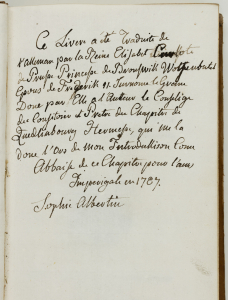 Ce Livre a été Traduite de
l'alleman par la Reine Elizabet
de Prusse Princesse de Bronsvick Wolfenbutel
Epous de Frederik II. Surnomé le Grand
Doné par Elle a l'auteur le
du Consitoire et du Chapitre de
Quedlinbourg Hermese, qui me la
doné l'Ors de mon Introduction Com
Abbaise de ce Chapitre pour l'ans
Imperigale en 1787.
Sophie Albertin